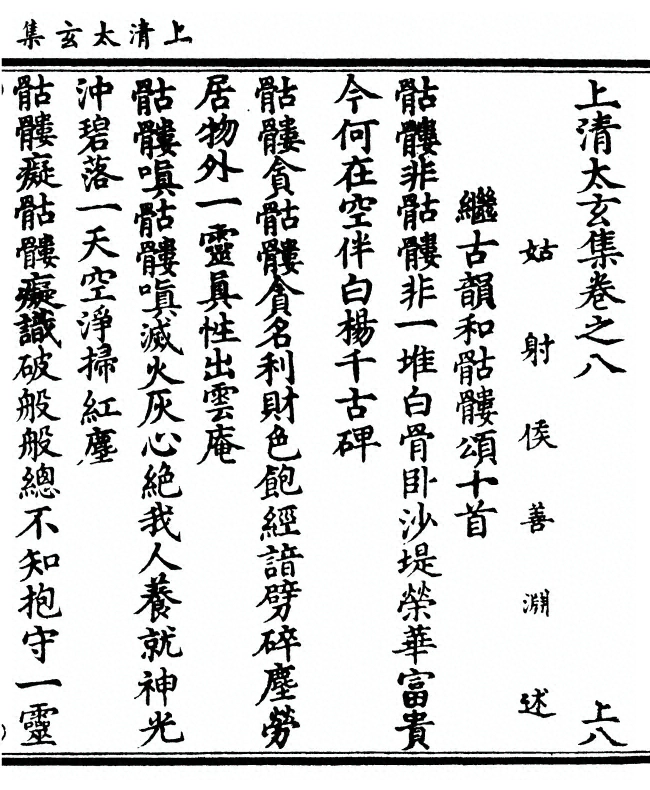 上清太玄集
上清太玄集卷之八 上八
姑射侯善淵述
繼古韻和骷髏頌十首
骷髏非骷髏非一堆白骨卧沙堤榮華富貴
今何在空伴白楊千古碑
骷髏貪骷髏貪名利財色飽經諳劈碎塵勞
居物外一靈眞性出雲庵
骷髏嗔骷髏嗔滅火灰心絶我人養就神光
沖碧落一天空淨掃紅塵
骷髏癡骷髏癡識破般般總不知抱守一靈